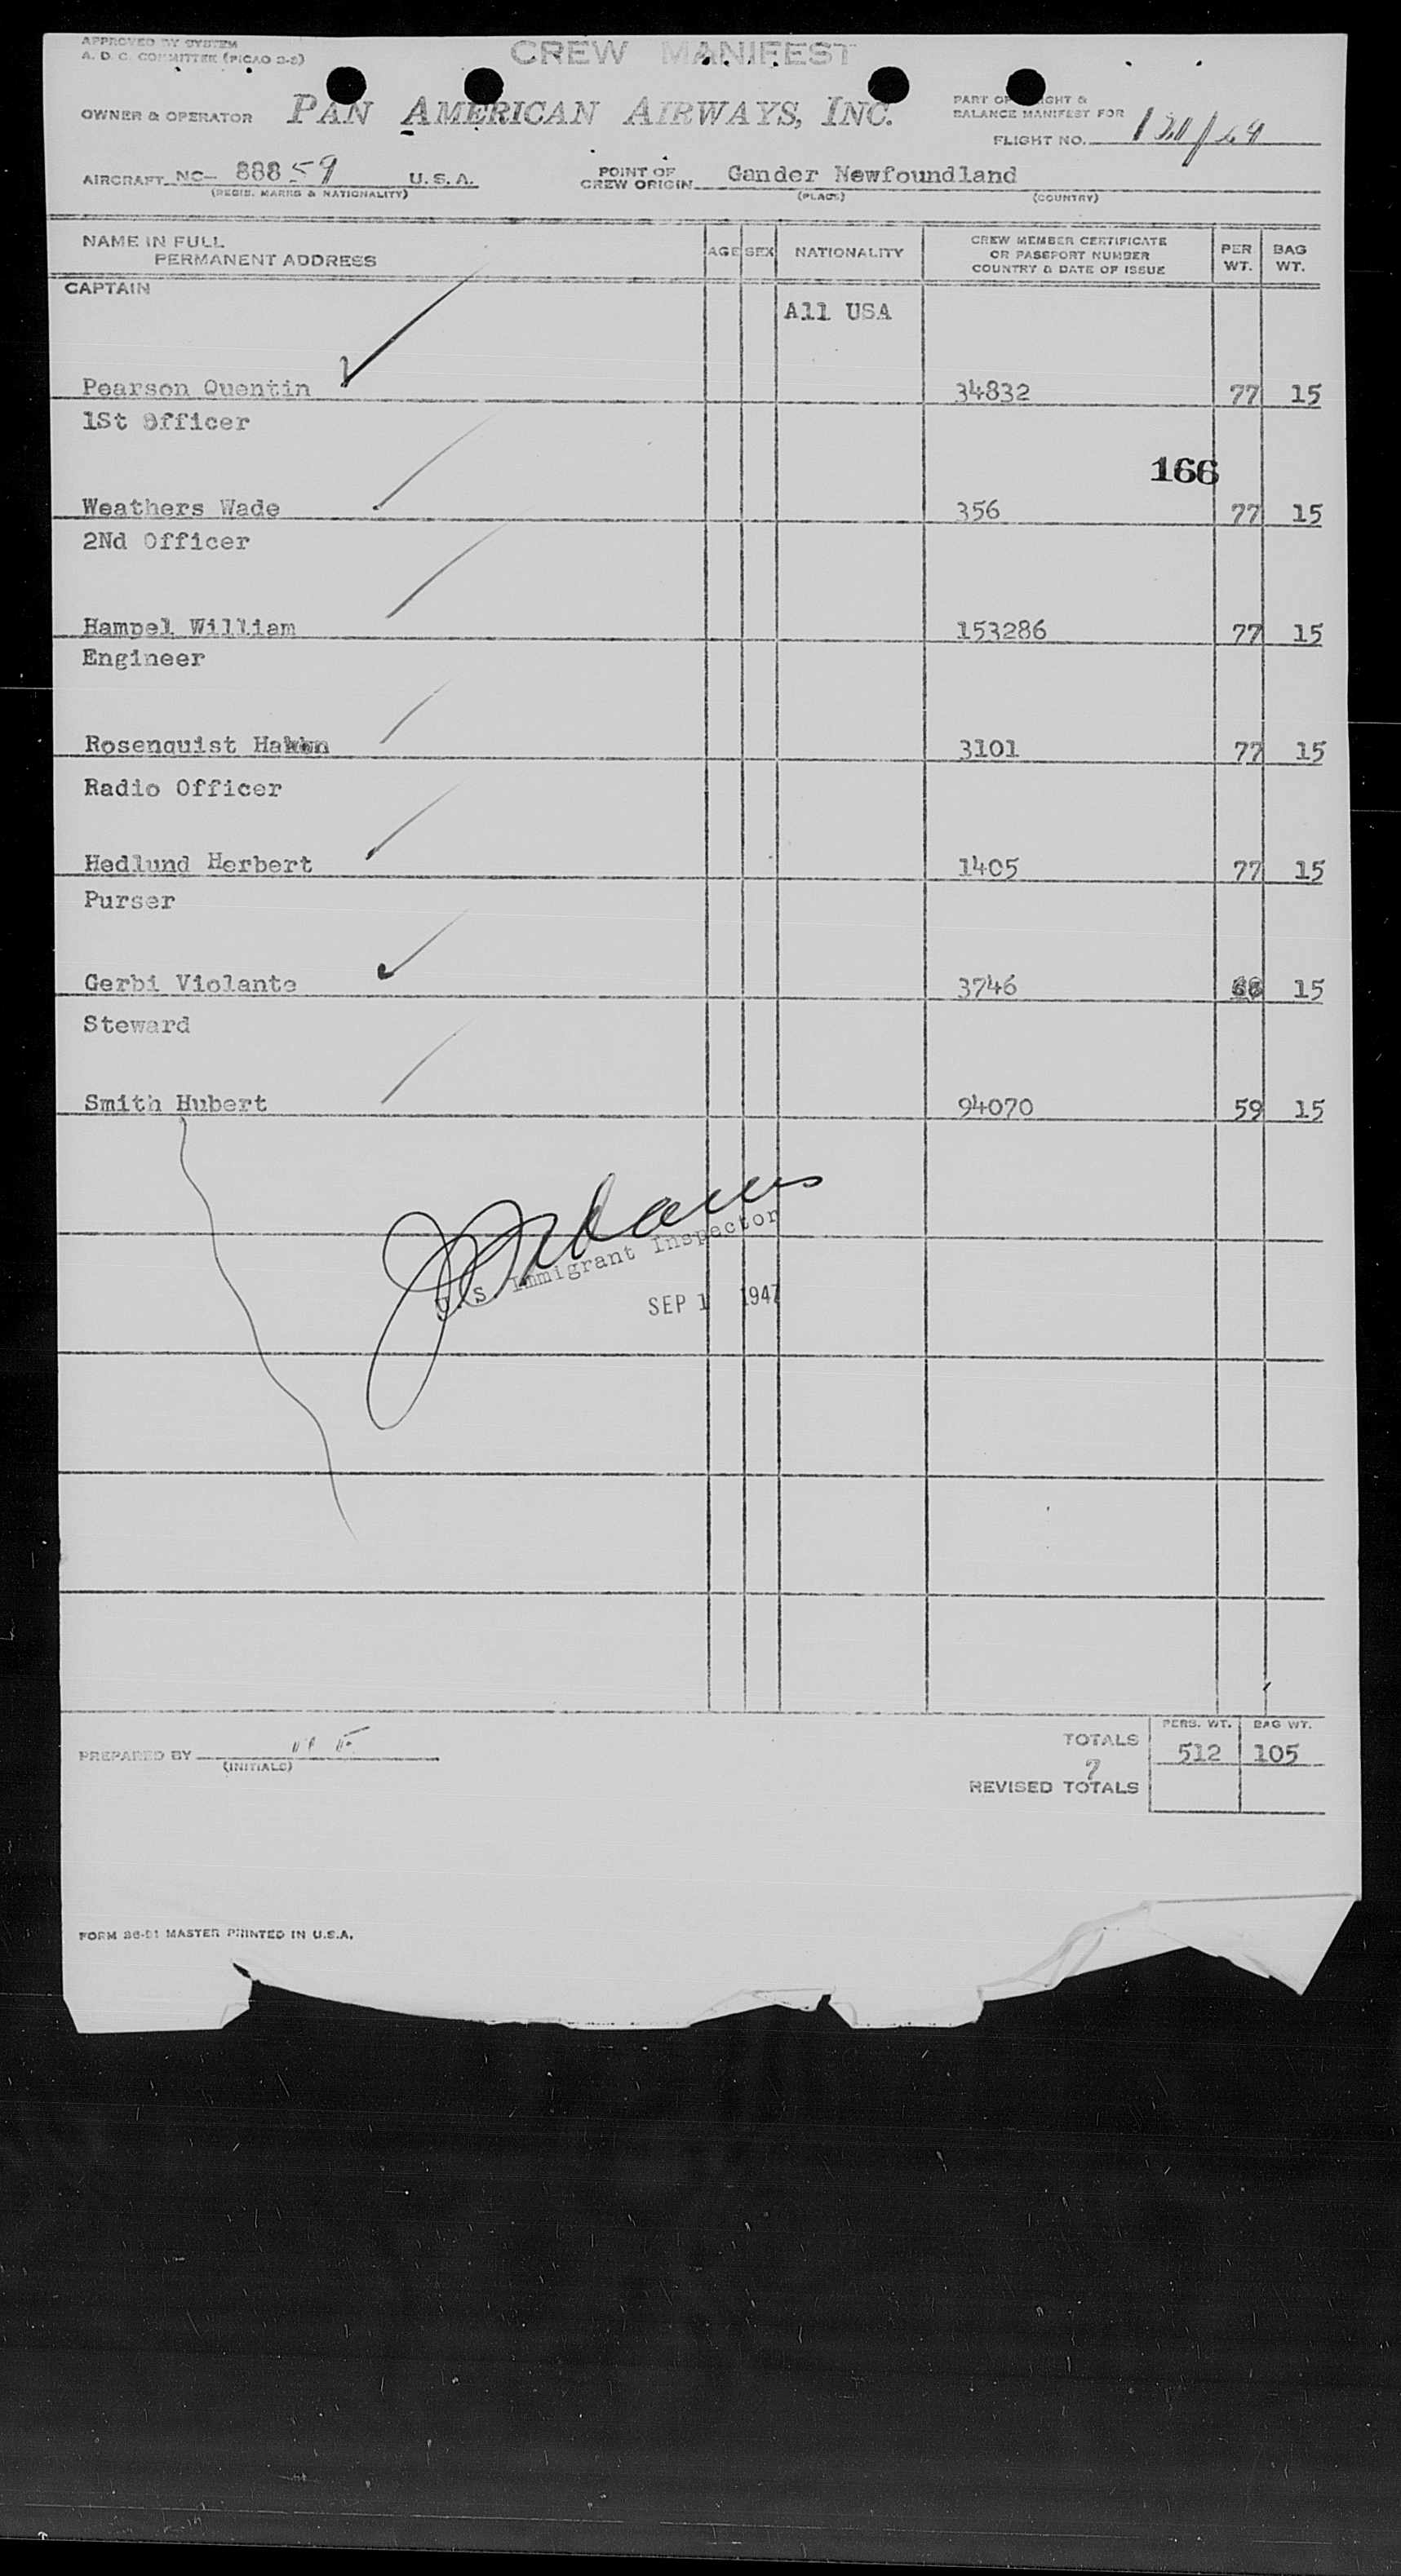 APPROVED BY SYSTEM
A. D. C. COMMITTEE (PICAO 2-8)
CREW MANIFEST
OWNER & OPERATOR PAN AMERICAN AIRWAYS, INC.
PART OF WEIGHT &
BALANCE MANIFEST FOR
FLIGHT NO.
AIRCRAFT NC- 88859 U. S. A.
(REGIS. MARKS & NATIONALITY)
POINT OF
CREW ORIGIN Gander Newfoundland
(PLACE) (COUNTRY)
NAME IN FULL
PERMANENT ADDRESS
AGE SEX NATIONALITY
CREW MEMBER CERTIFICATE
OR PASSPORT NUMBER
COUNTRY & DATE OF ISSUE
PER
WT.
BAG
WT.
CAPTAIN
All USA
Pearson Quentin 34832 77 15
1St Officer
166
Weathers Wade 356 77 15
2Nd Officer
Hampel William 153286 77 15
Engineer
Rosenquist 3101 77 15
Radio Officer
Hedlund Herbert 1405 77 15
Purser
Gerbi Violante 3746 68 15
Steward
Smith Hubert 94070 59 15
U.S. Immigrant Inspector
SEP 1 1947
PREPARED BY
(INITIALS)
PERS. WT. BAG WT.
TOTALS 512 105
7
REVISED TOTALS
FORM MASTER PRINTED IN U.S.A.